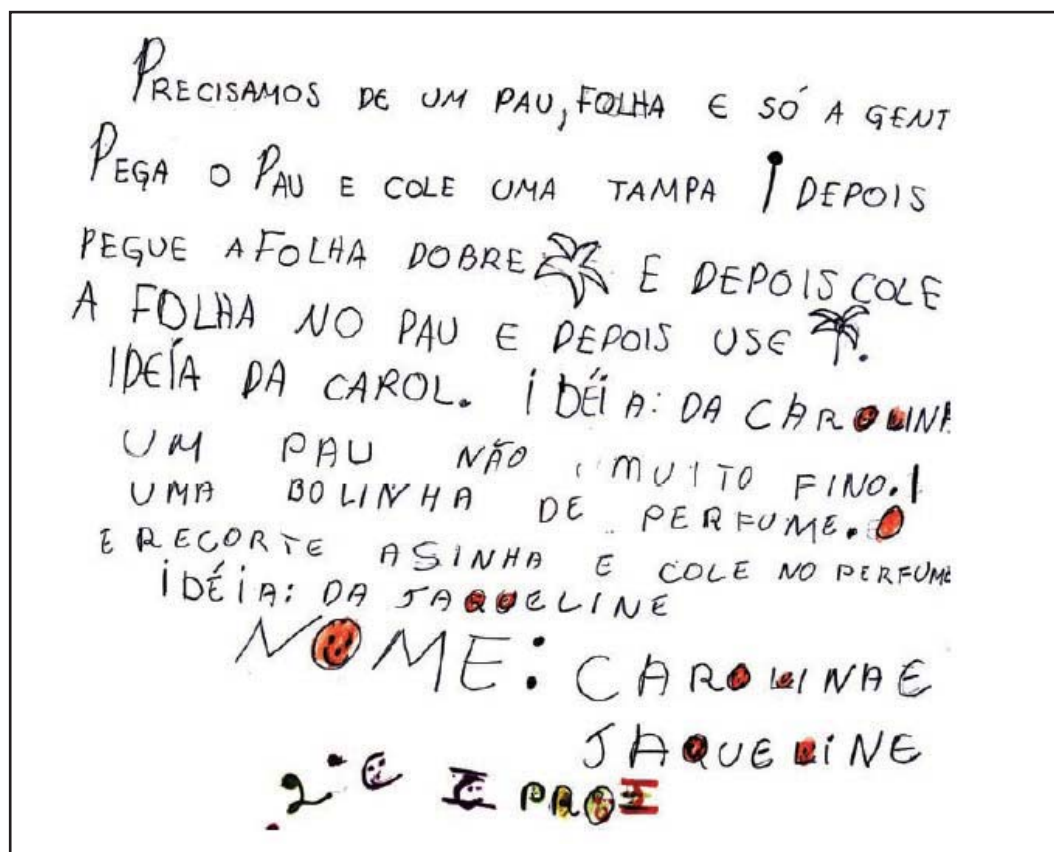 PRECISAMOS DE UM PAU, FOLHA E SÓ A GENT
PEGA O PAU E COLE UMA TAMPA DEPOIS
PEGUE A FOLHA DOBRE E DEPOIS COLE
A FOLHA NO PAU E DEPOIS USE .
IDEÍA DA CAROL. IDÉIA: DA CAROLINA
UM PAU NÃO MUITO FINO.
UMA BOLINHA DE PERFUME.
E RECORTE ASINHA E COLE NO PERFUME
IDÉIA: DA JAQUELINE
NOME: CAROLINA E
JAQUELINE
2º C